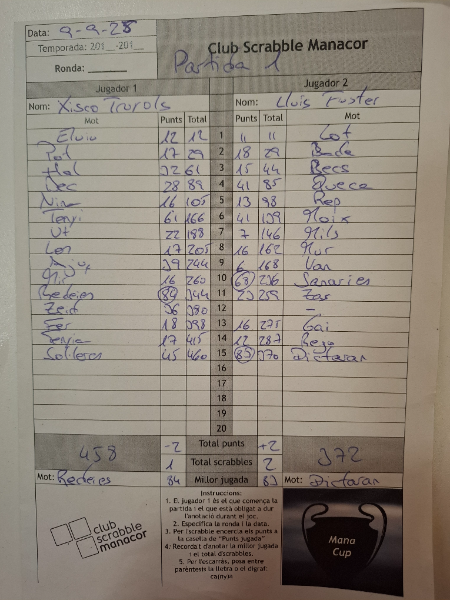 Data: 9-9-25
Temporada: 201__-201__
Ronda: ______
Club Scrabble Manacor
Partida 1
Jugador 1 Jugador 2
Nom: Xisco Truyols Nom: Lluís Fuster
Mot Punts Total Punts Total Mot
12 12 1 11 11 Cot
17 29 2 18 29
32 61 3 15 44 Becs
Dec 28 89 4 41 85 Queca
Nina 16 105 5 13 98 Rep
61 166 6 41 139 Moix
Ut 22 188 7 7 146 Mils
17 205 8 16 162 Mur
39 244 9 6 168 Van
16 260 10 68 236 Sanaries
Redeies 84 344 11 23 259 Zas
Zeid 36 380 12 -
Fer 18 398 13 16 275 Gai
17 415 14 12 287
45 460 15 83 370 Dictaran
16
17
18
19
20
458 -2 Total punts +2 372
1 Total scrabbles 2
Mot: Redeies 84 Millor jugada 83 Mot: Dictaran
Instruccions:
1. El jugador 1 és el que comença la
partida i el que està obligat a dur
l'anotació durant el joc.
2. Especifica la ronda i la data.
3. Per l'scrabble encercla els punts a
la casella de "Punts jugada"
4. Recorda't d'anotar la millor jugada
i el total d'scrabbles.
5. Per l'escarràs, posa entre
parèntesis la lletra o el dígraf
club
scrabble
manacor
Mana
Cup